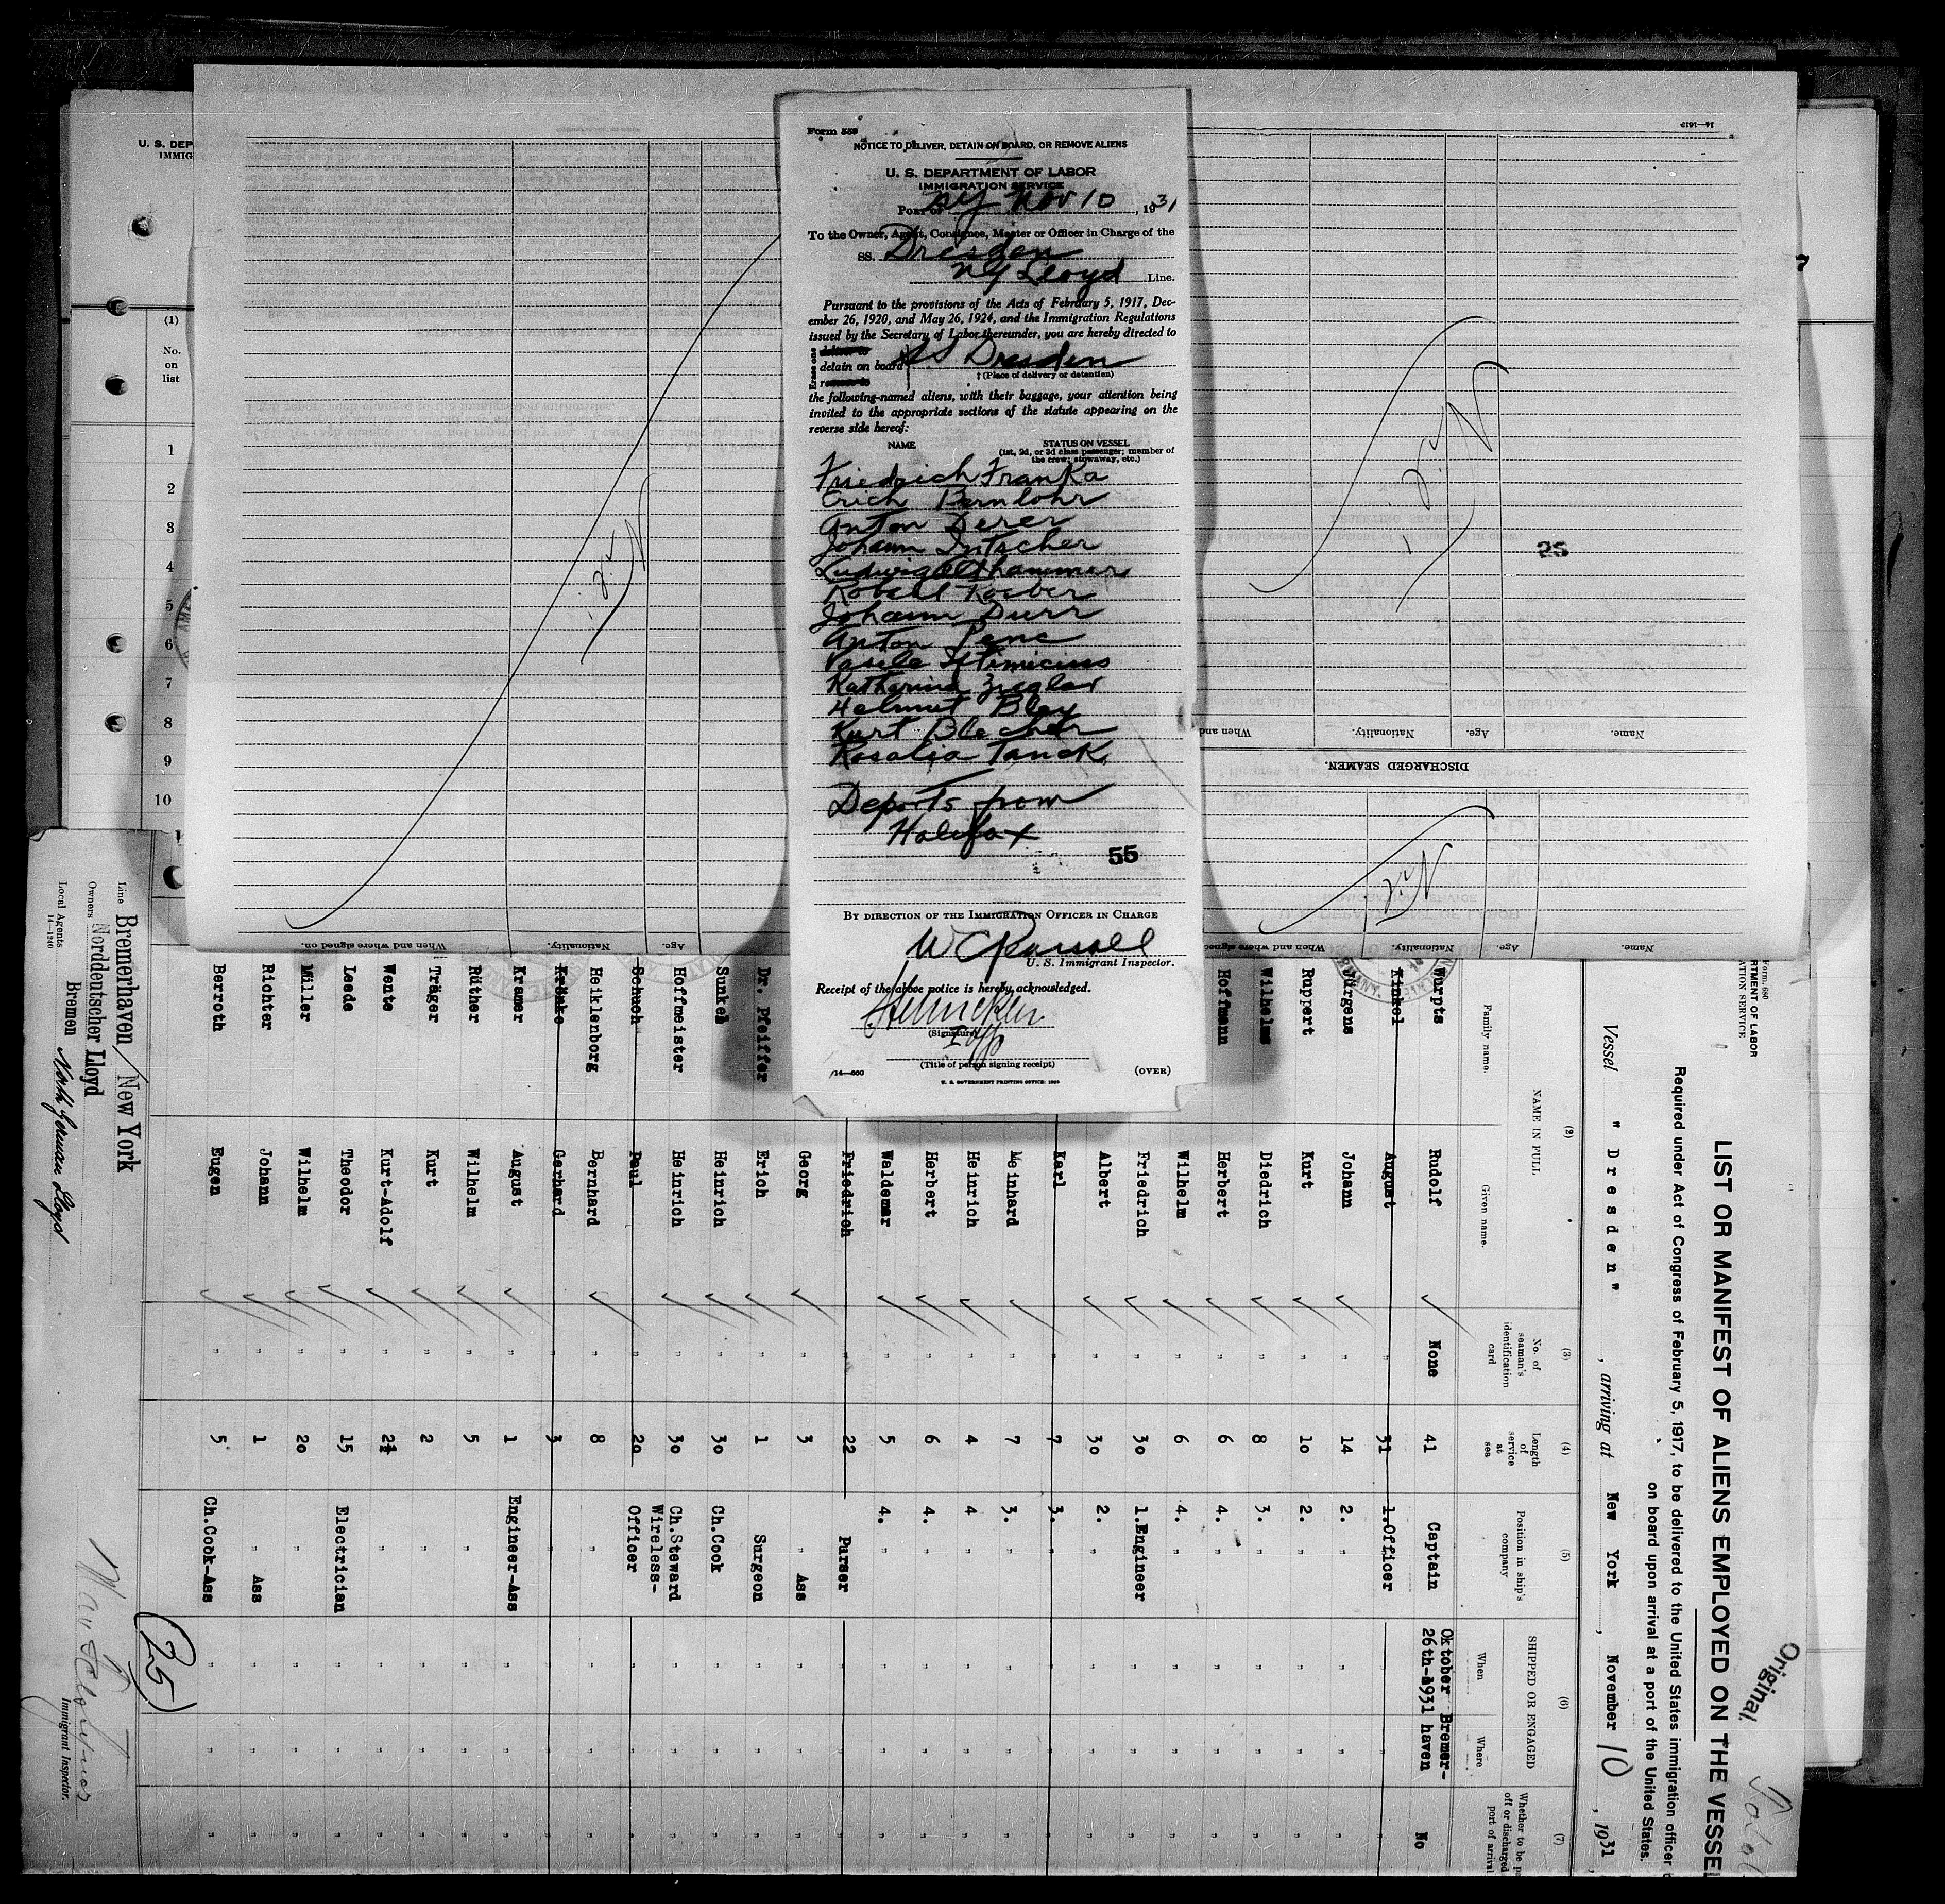 Form 559
NOTICE TO DELIVER, DETAIN ON BOARD, OR REMOVE ALIENS
U. S. DEPARTMENT OF LABOR
IMMIGRATION SERVICE
Port of NY Nov 10, 1931
To the Owner, Agent, Consignee, Master or Officer in Charge of the
SS. Dresden
NG Lloyd Line.
Pursuant to the provisions of the Acts of February 5, 1917, Dec-
ember 26, 1920, and May 26, 1924, and the Immigration Regulations
issued by the Secretary of Labor thereunder, you are hereby directed to
detain on board SS Dresden
† (Place of delivery or detention)
the following-named aliens, with their baggage, your attention being
invited to the appropriate sections of the statute appearing on the
reverse side hereof:
NAME STATUS ON VESSEL
(1st, 2d, or 3d class passenger; member of
the crew; stowaway, etc.)
Friedrich Franka
Erich Bernlohr
Anton Derer
Johann
Ludwig Althammer
Robert Koeber
Johann Durr
Anton Penc
Vasile
Katharina Zieglar
Helmut Bley
Kurt Blecher
Rosalia Tanck
Deports from
Halifax
55
BY DIRECTION OF THE IMMIGRATION OFFICER IN CHARGE
W C Russell
U. S. Immigrant Inspector.
Receipt of the above notice is hereby acknowledged.
(Signature)
(Title of person signing receipt)
14—660 (OVER)
U. S. GOVERNMENT PRINTING OFFICE: 1929
U. S. DEP
IMMIG
(1)
No.
on
list
1
2
3
4
5
6
7
8
9
10
14—1612
25
Name. Age. Nationality. When and
DISCHARGED SEAMEN.
Name. Age. Nationality. When and where signed
Age. Nationality. When and where signed on.
Original
Form 680
RTMENT OF LABOR
ATION SERVICE
LIST OR MANIFEST OF ALIENS EMPLOYED ON THE VESSEL
Required under Act of Congress of February 5, 1917, to be delivered to the United States immigration officer
on board upon arrival at a port of the United States.
Vessel "Dresden", arriving at New York, November 10, 1931,
(2) (3) (4) (5) (6) (7)
NAME IN FULL No. of seaman's identification card Length of service at sea Position in ship's company SHIPPED OR ENGAGED Whether to be
off or discharged
port of arrival
Family name. Given name. When Where
Wurpts Rudolf None 41 Captain Oktober 26th-1931 Bremerhaven No
Kinkel August " 31 1.Officer " " "
Jürgens Johann " 14 2. " " " "
Ruppert Kurt " 10 2. " " " "
Wilhelms Diedrich " 8 3. " " " "
Hoffmann Herbert " 6 4. " " " "
Wilhelm " 6 4. " " " "
Friedrich " 30 1.Engineer " " "
Albert " 30 2. " " " "
Karl " 7 3. " " " "
Meinhard " 7 3. " " " "
Heinrich " 4 4 " " " "
Herbert " 6 4. " " " "
Waldemar " 5 4. " " " "
Friedrich " 22 Purser " " "
Georg " 3 " Ass " " "
Dr. Pfeiffer Erich " 1 Surgeon " " "
Sunkel Heinrich " 30 Ch.Cook " " "
Hoffmeister Heinrich " 30 Ch.Steward " " "
Schuch Paul " 20 Wireless-Officer " " "
Heiklenborg Bernhard " 8 " " " "
Krönke Gerhard " 3 " " " "
Kramer August " 1 Engineer-Ass " " "
Rüther Wilhelm " 5 " " " "
Träger Kurt " 2 " " " "
Wente Kurt-Adolf " 2½ " " " "
Leede Theodor " 15 Electrician " " "
Miller Wilhelm " 20 " " " "
Richter Johann " 1 " Ass " " "
Berroth Eugen " 5 Ch.Cook-Ass " " "
(25)
Line Bremerhaven/New York
Owners Norddeutscher Lloyd
Bremen
Local Agents North German Lloyd
14—1240
Immigrant Inspector.